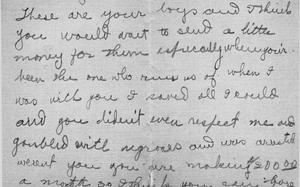 These are your boys and I think
you would want to send a little
money for them especially when you've
been the one who runs us of. when I
was with you I saved all I could
and you didn't even respect me and
gambled with negroes and was arrested
weren't you you are making $200.00
a month so I think your